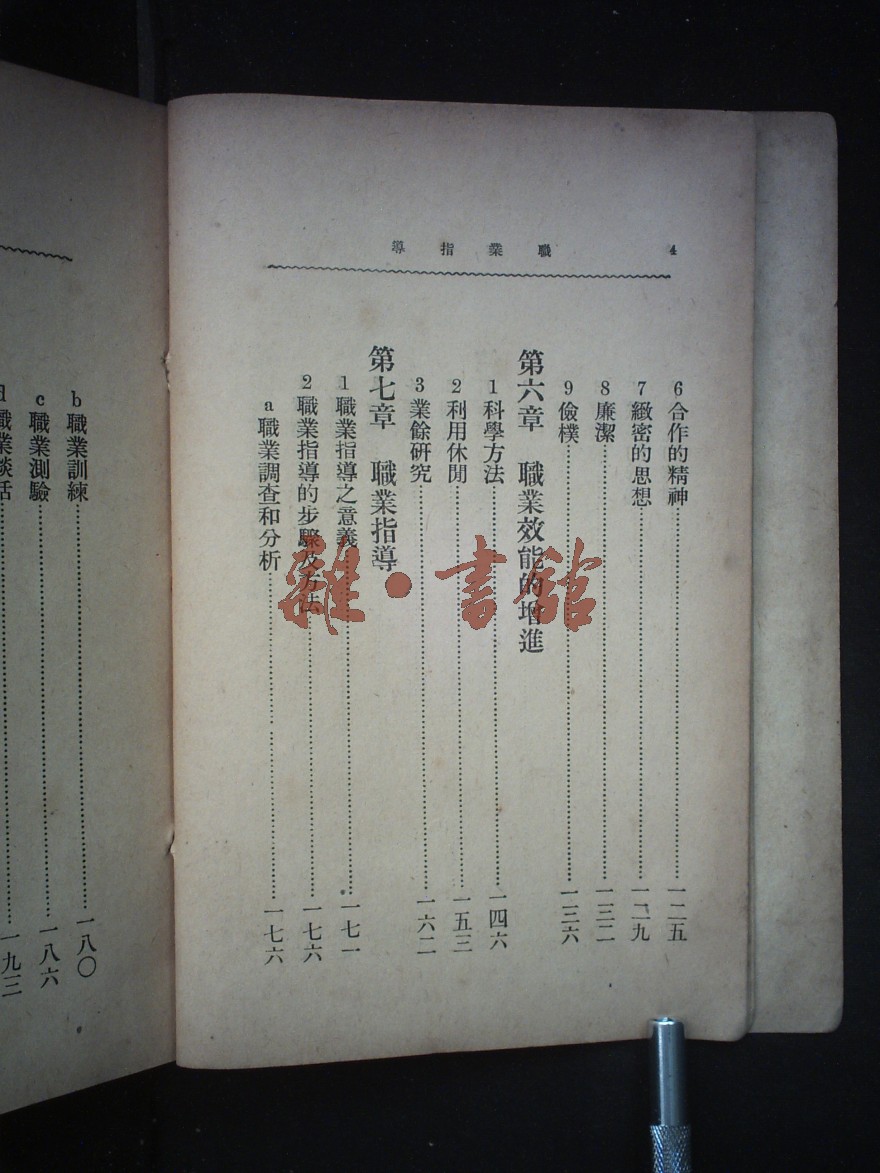 職業指導 4
6 合作的精神……一二五
7 緻密的思想……一二九
8 廉潔……一三二
9 儉樸……一三六
第六章 職業效能的增進
1 科學方法……一四六
2 利用休閒……一五三
3 業餘研究……一六二
第七章 職業指導
1 職業指導之意義……一七一
2 職業指導的步驟及方法……一七六
a 職業調查和分析……一七六
b 職業訓練……一八〇
c 職業測驗……一八六
d 職業談話……一九三
雜·書館